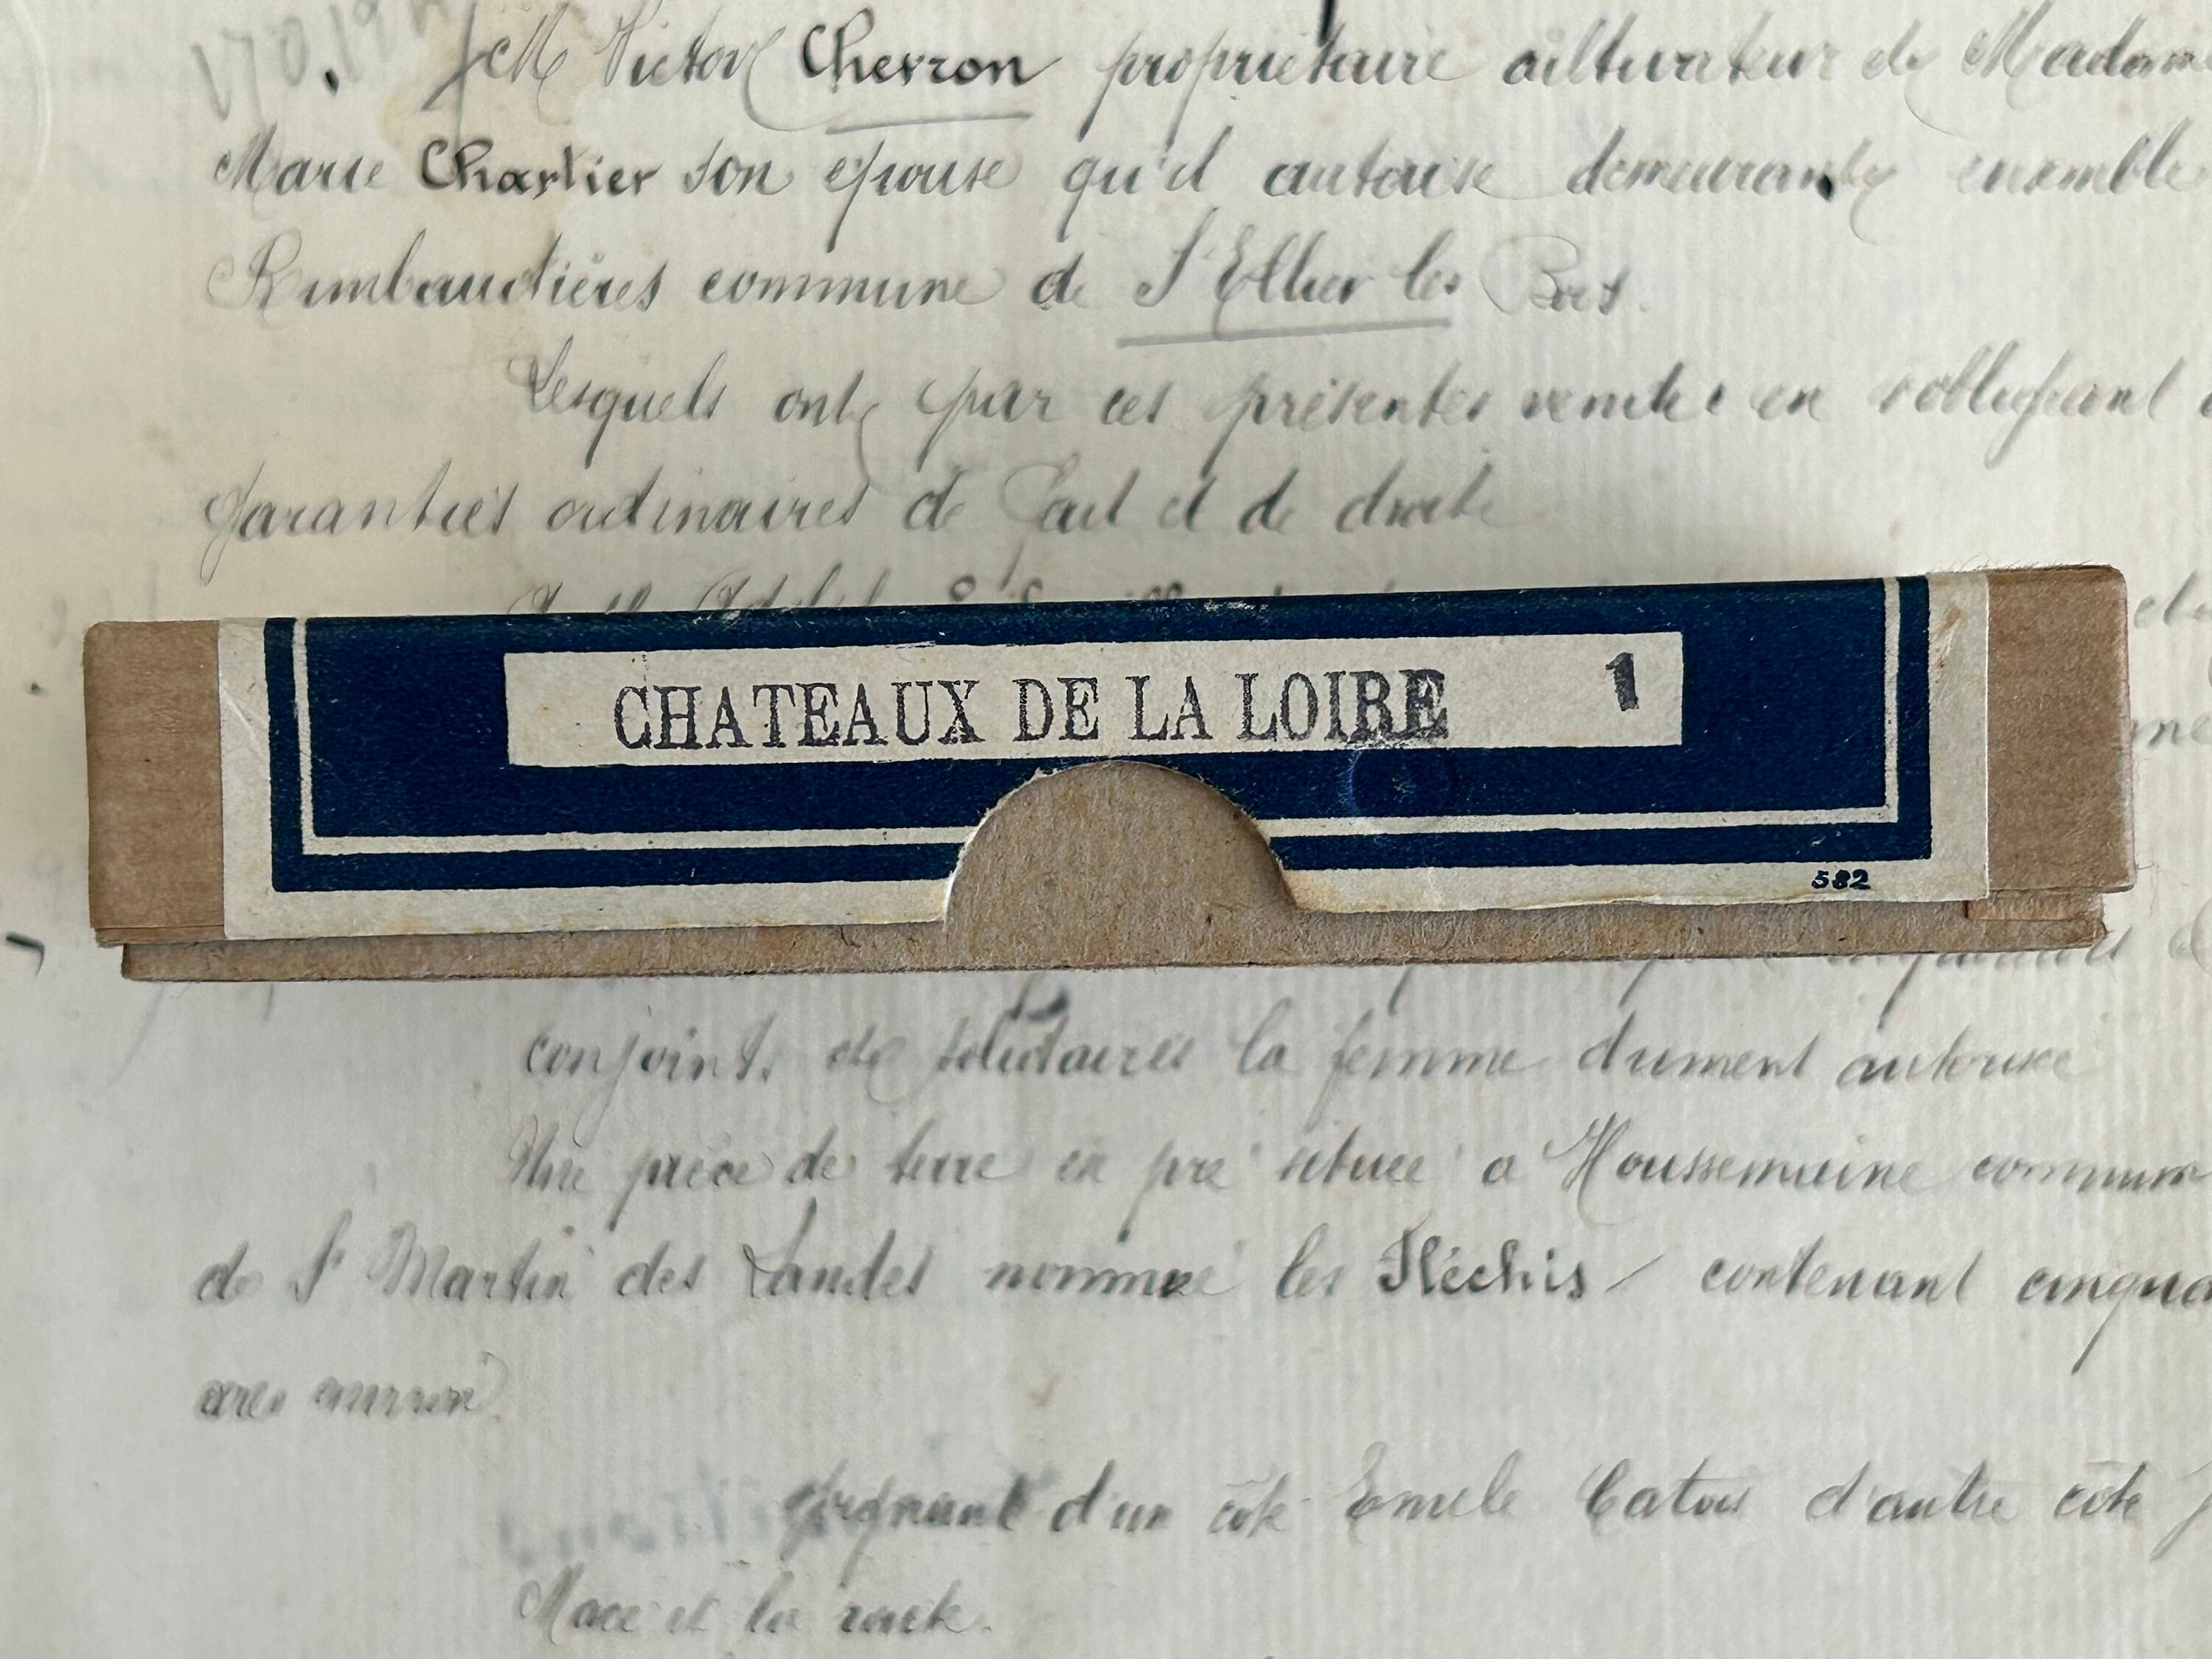 M Victor Chevron propriétaire cultivateur et Madame
Marie Chartier son épouse qu'il autorise demeurant ensemble
Rimbaudières commune de St Ellier les Bois.
Lesquels ont par ces présentes vendu en s'obligeant
garanties ordinaires de fait et de droit
CHATEAUX DE LA LOIRE 1
582
conjoints et solidaires la femme dument autorisée
Une pièce de terre en pré située a Houssemaine commune
de St Martin des Landes nommée les Fléchis contenant
ares environ
joignant d'un côté Emile Catois d'autre côté
Macé et la route.